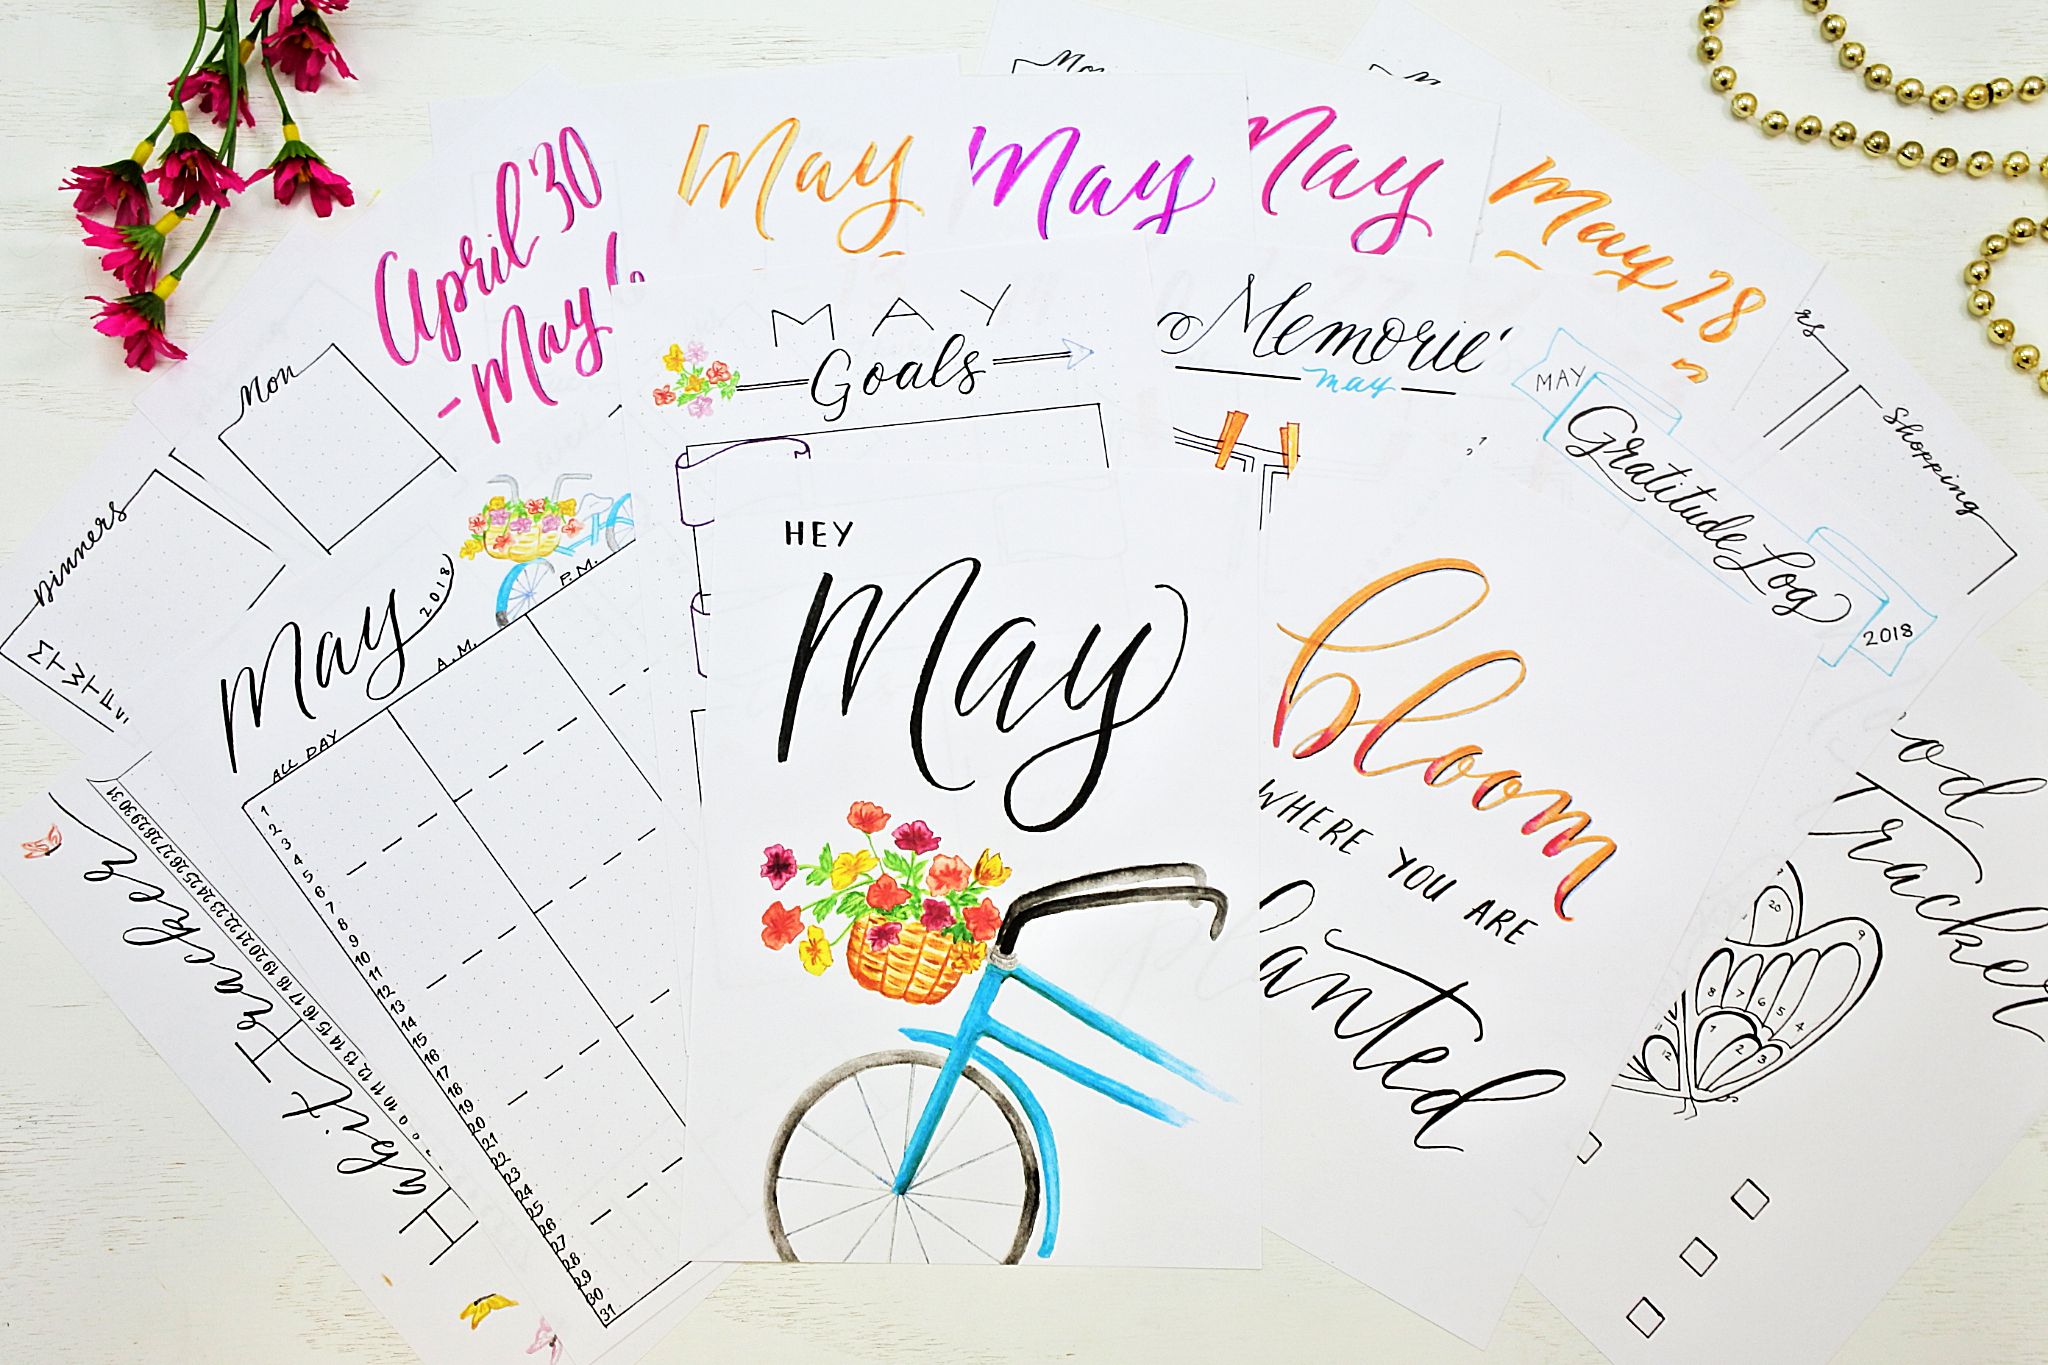 April 30
- May
May
May
May
May 28
Mon
Dinners
M
T
W
T
F
S
MAY
Goals
Memorie
may
MAY
Gratitude Log
2018
Shopping
May 2018
ALL DAY
A.M.
P.M.
1
2
3
4
5
6
7
8
9
10
11
12
13
14
15
16
17
18
19
20
21
22
23
24
25
26
27
28
29
30
31
HEY
May
bloom
WHERE YOU ARE
lanted
Habit Tracker
10 11 12 13 14 15 16 17 18 19 20 21 22 23 24 25 26 27 28 29 30 31
ood
Tracker
20
9
8 7 6 5 4
1 2 3
12 11